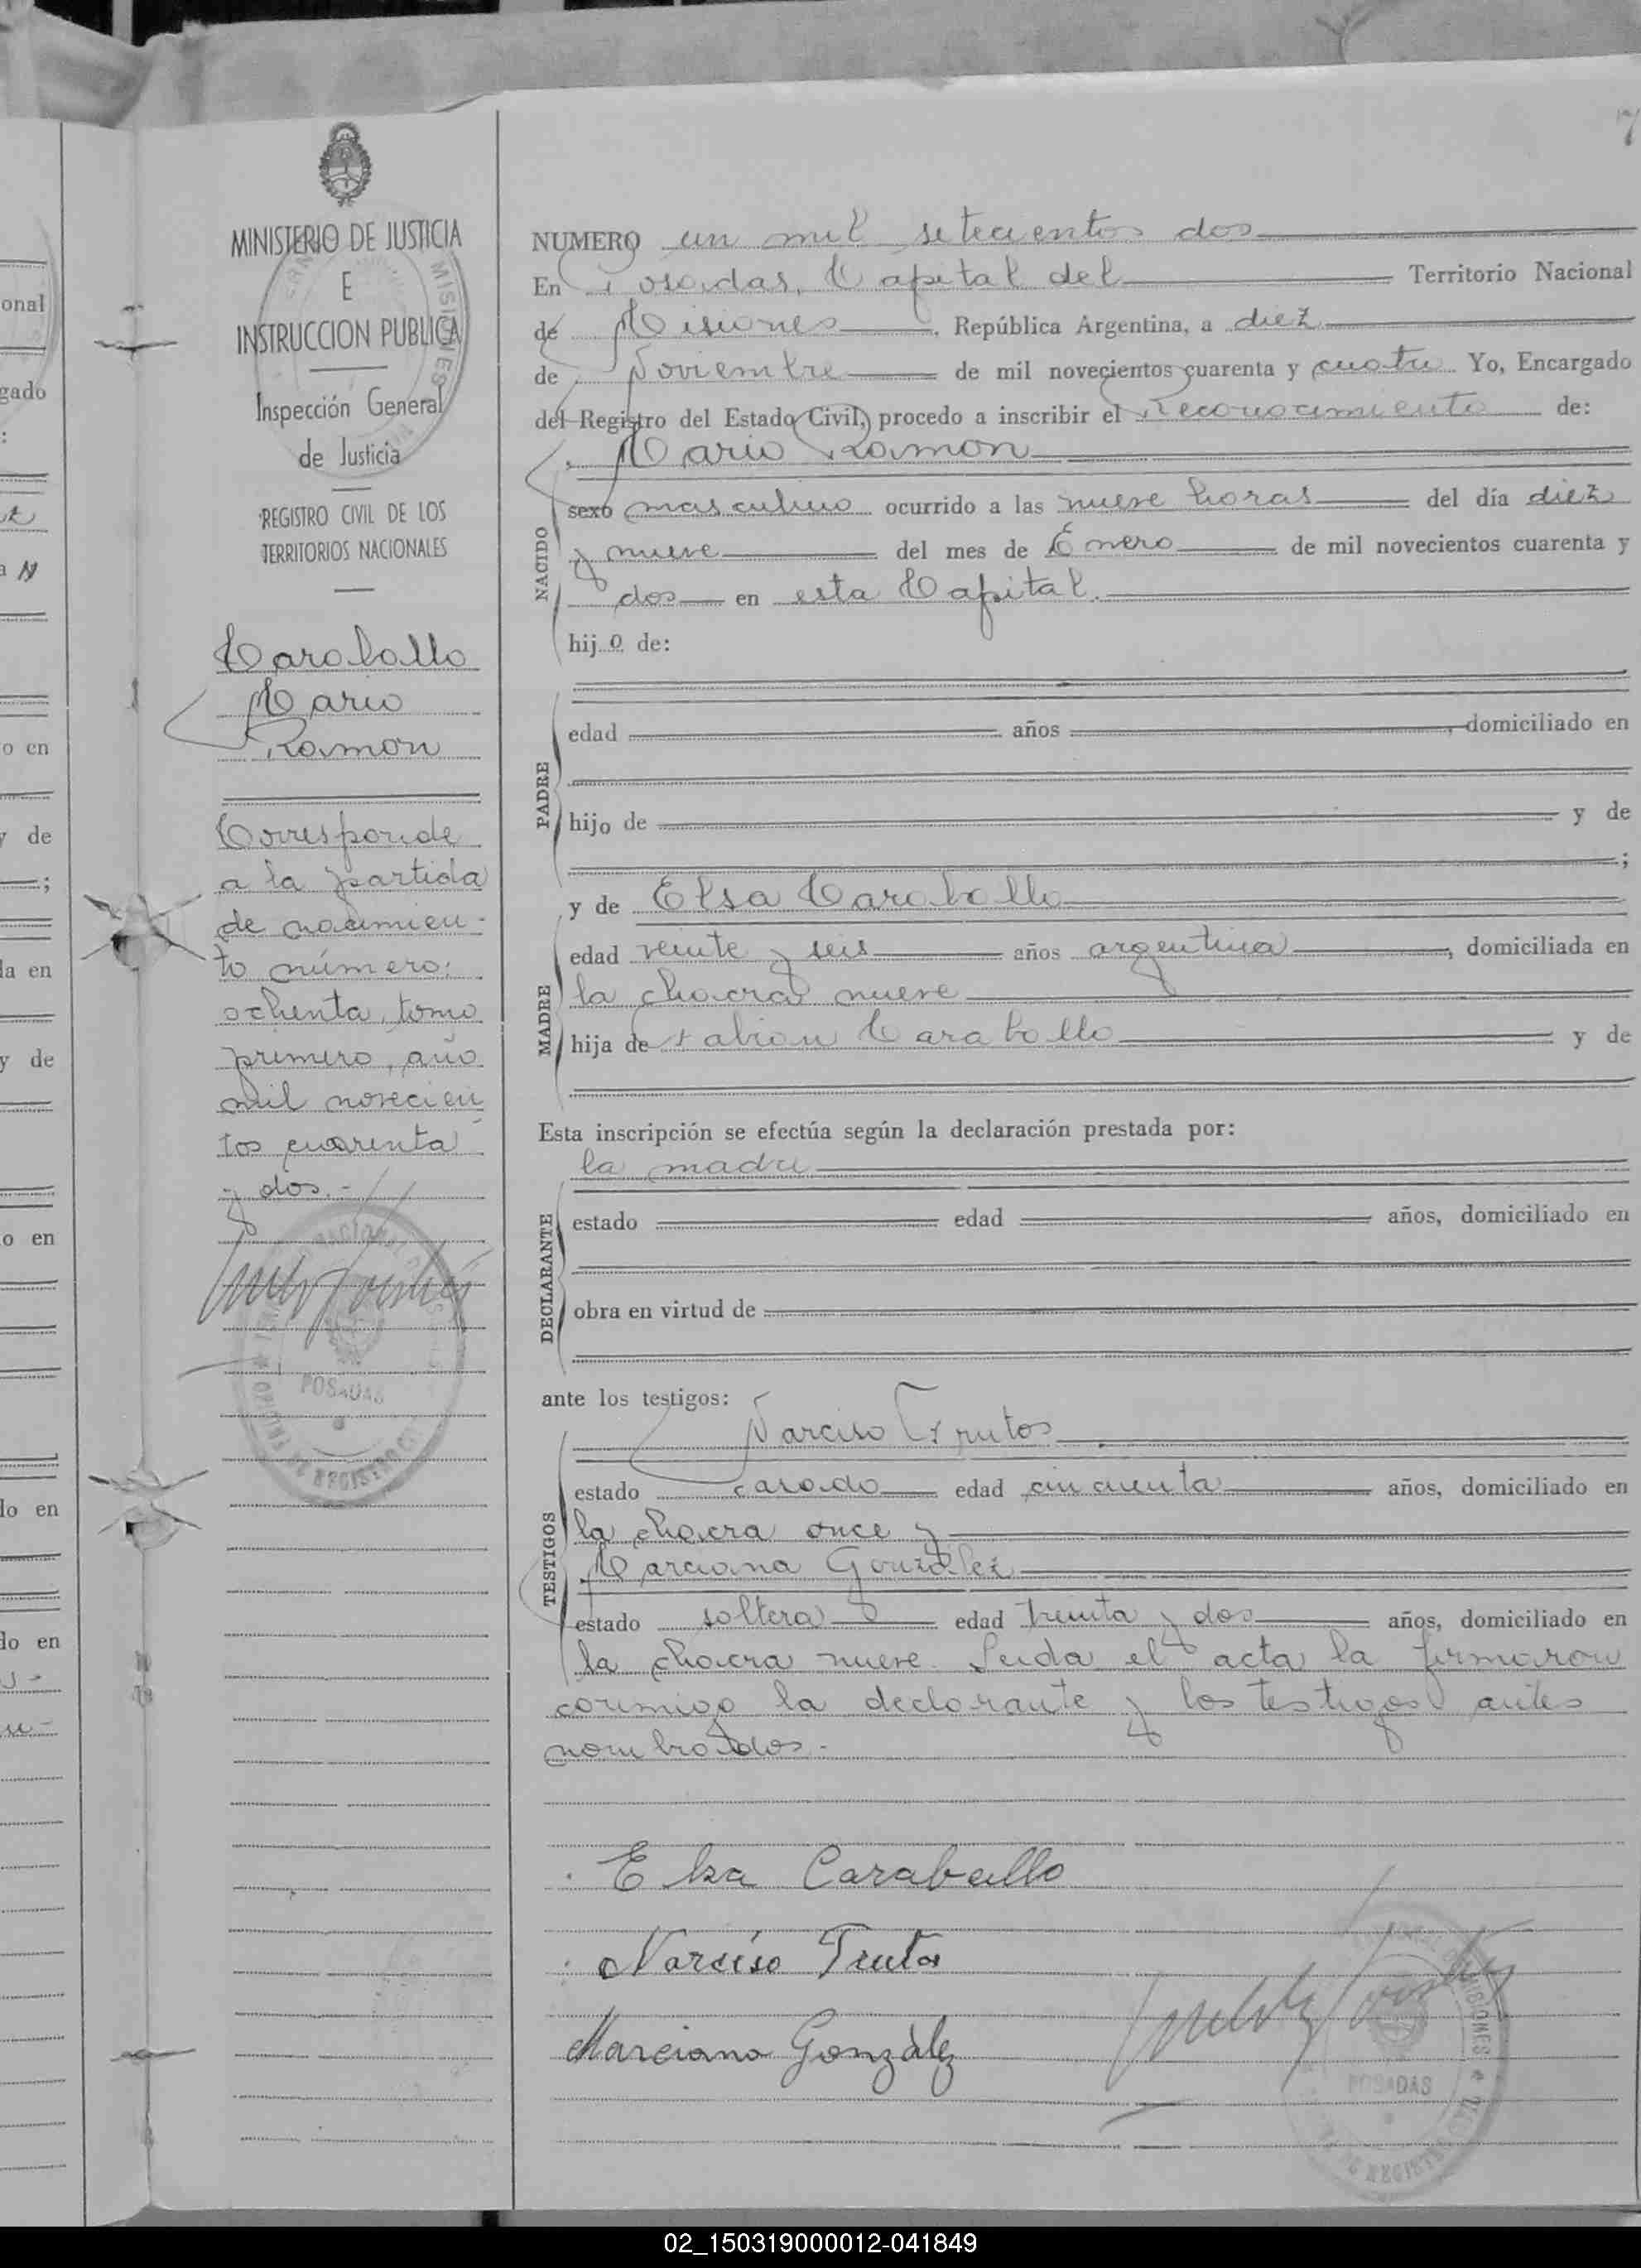 onal
gado
:
o en
y de
;
da en
y de
o en
do en
do en
MINISTERIO DE JUSTICIA
E
INSTRUCCION PUBLICA
Inspección General
de Justicia
REGISTRO CIVIL DE LOS
TERRITORIOS NACIONALES
Caraballo
Mario
Ramon
Corresponde
a la partida
de nacimien-
to número:
ochenta, tomo
primero, año
mil novecien
tos cuarenta
y dos.-
POSADAS
7
NUMERO un mil setecientos dos
En Posadas, Capital del Territorio Nacional
de Misiones, República Argentina, a diez
de Noviembre de mil novecientos cuarenta y cuatro Yo, Encargado
del Registro del Estado Civil, procedo a inscribir el Reconocimiento de:
Mario Ramon
NACIDO
sexo masculino ocurrido a las nueve horas del día diez
y nueve del mes de Enero de mil novecientos cuarenta y
dos en esta Capital.
hijo de:
PADRE
edad años , domiciliado en
hijo de y de
;
MADRE
y de Elsa Caraballo
edad veinte y seis años argentina, domiciliada en
la chacra nueve
hija de Fabian Caraballo y de
Esta inscripción se efectúa según la declaración prestada por:
la madre
DECLARANTE
estado edad años, domiciliado en
obra en virtud de
ante los testigos:
TESTIGOS
Narciso Frutos
estado casado edad cincuenta años, domiciliado en
la chacra once y
Marciana González
estado soltera edad treinta y dos años, domiciliado en
la chacra nueve. Leida el acta la firmaron
conmigo la declarante y los testigos antes
nombrados.-
Elsa Caraballo
Narciso Frutos
Marciana González
POSADAS
02_150319000012-041849